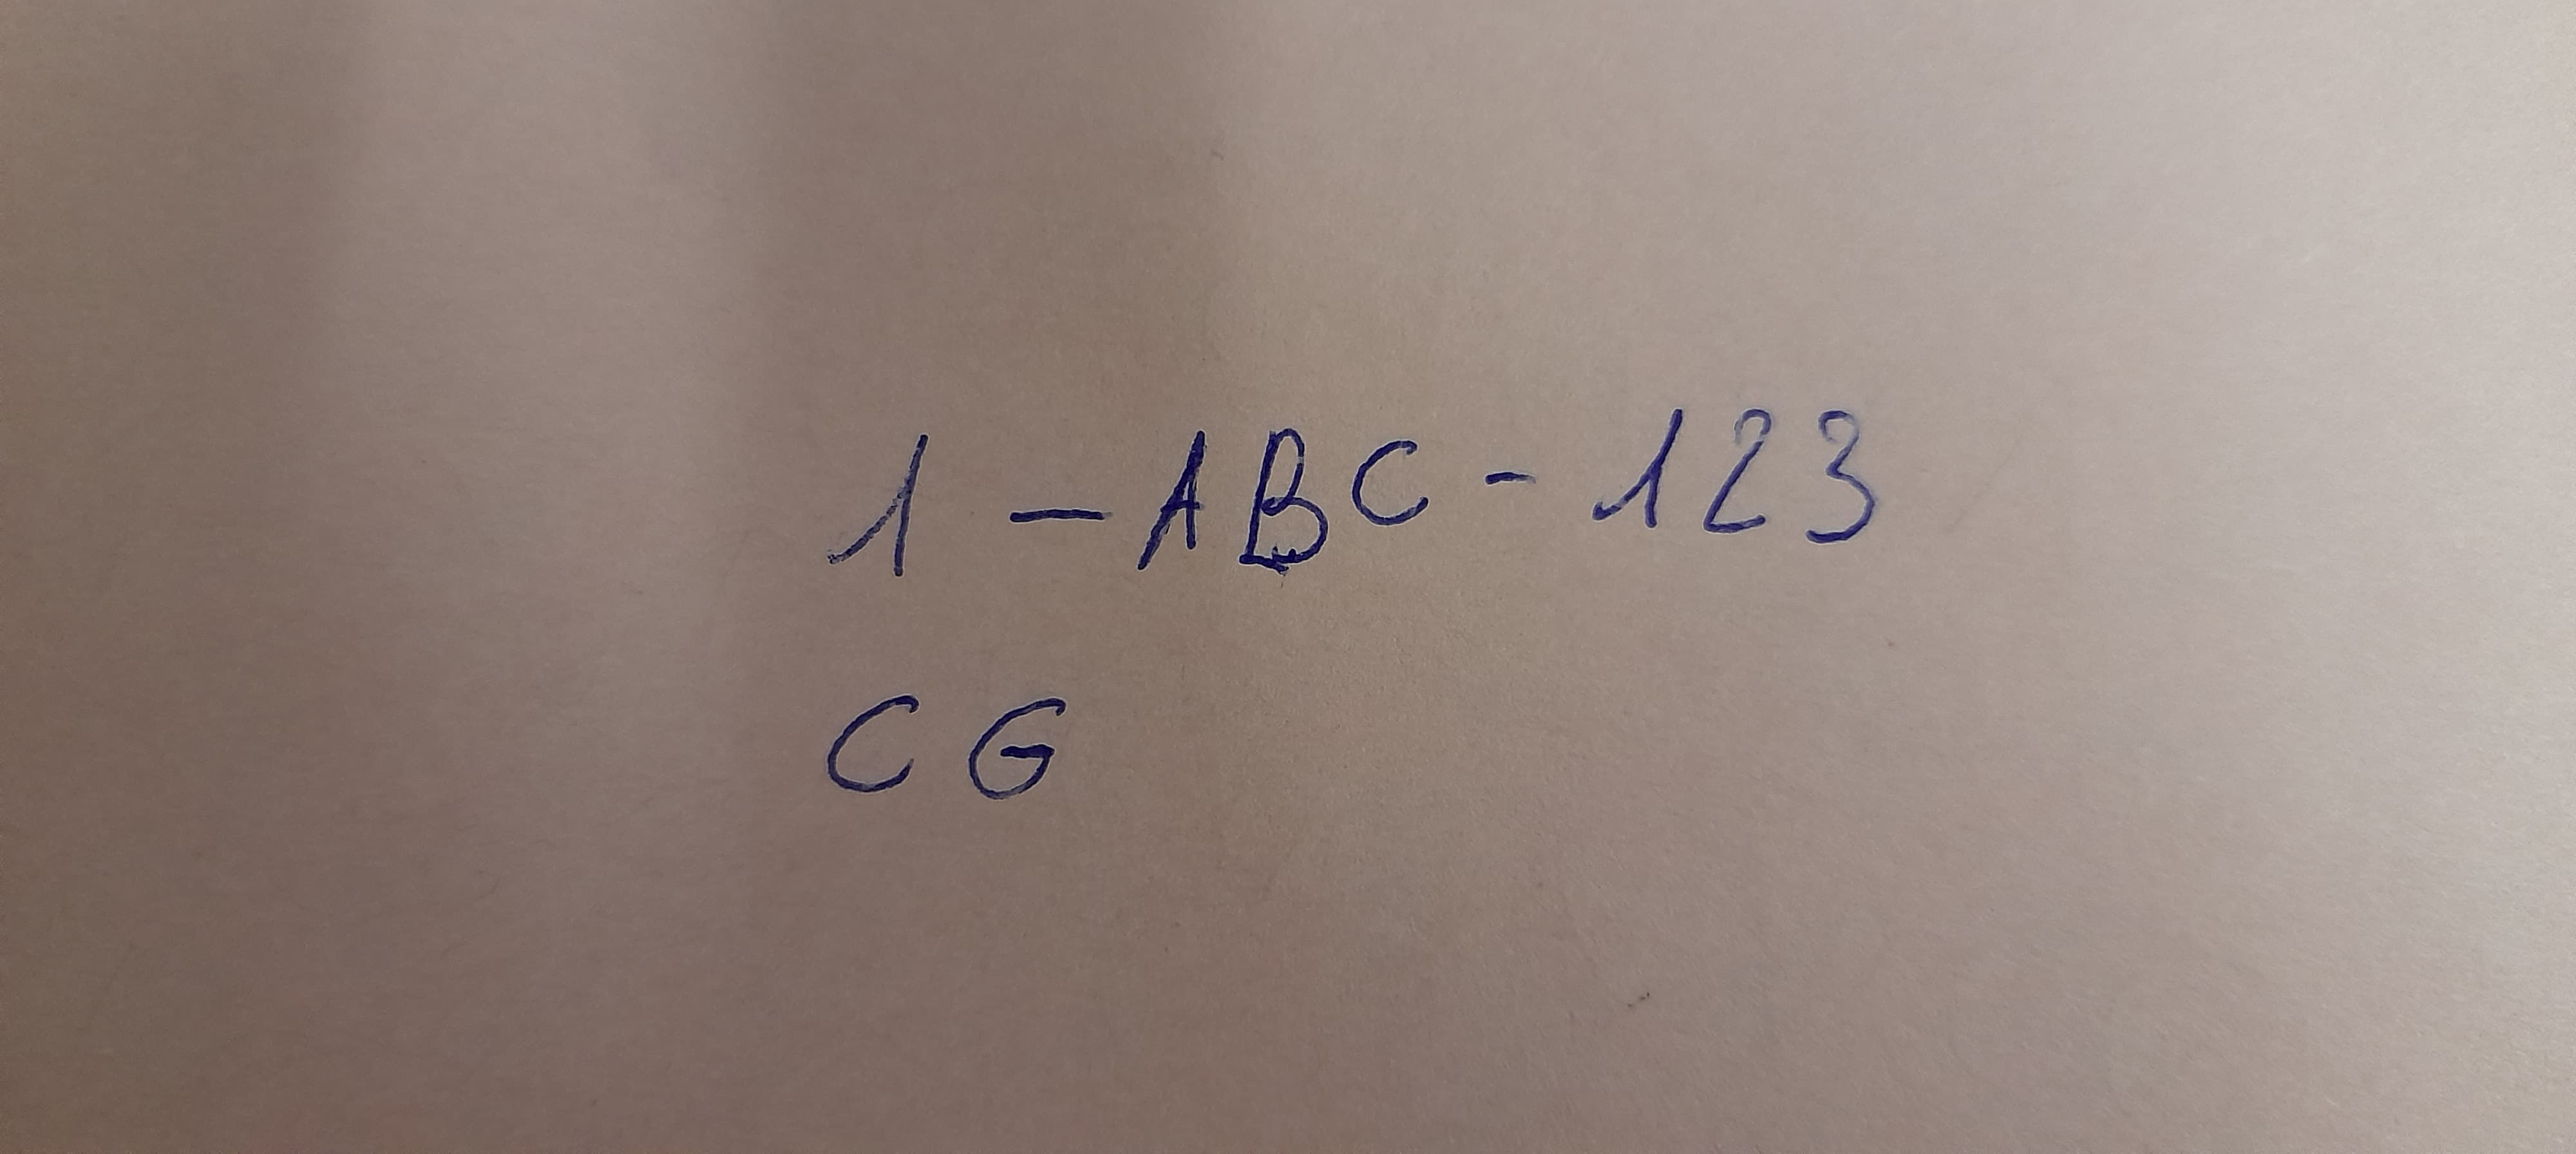 1 - ABC - 123
CG